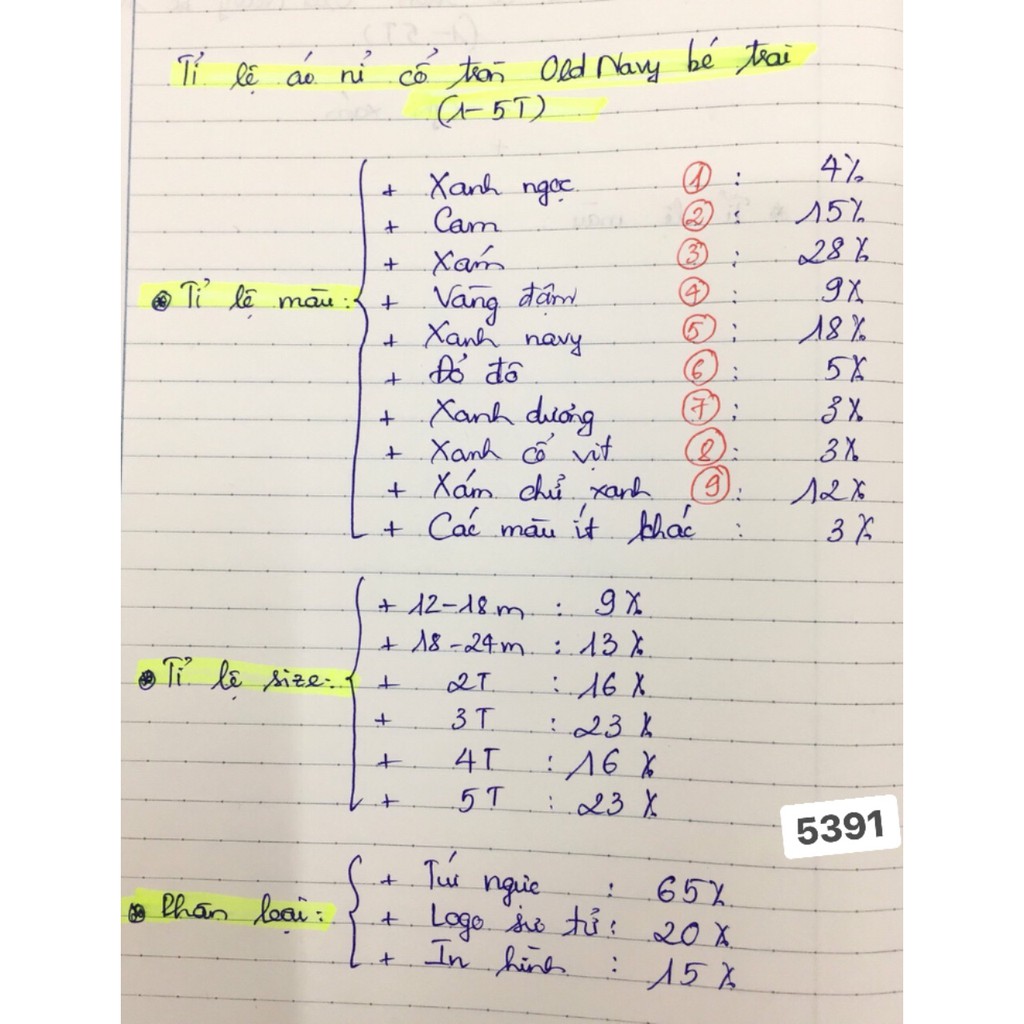 Tỉ lệ áo nỉ cổ tròn Old Navy bé trai
(1-5T)
Tỉ lệ màu:
+ Xanh ngọc ① : 4%
+ Cam ② : 15%
+ Xám ③ : 28%
+ Vàng đậm ④ : 9%
+ Xanh navy ⑤ : 18%
+ Đỏ đô ⑥ : 5%
+ Xanh dương ⑦ : 3%
+ Xanh cổ vịt ⑧ : 3%
+ Xám chữ xanh ⑨ : 12%
+ Các màu ít khác : 3%
Tỉ lệ size:
+ 12-18m : 9%
+ 18-24m : 13%
+ 2T : 16%
+ 3T : 23%
+ 4T : 16%
+ 5T : 23%
5391
Phân loại:
+ Túi ngực : 65%
+ Logo sư tử : 20%
+ In hình : 15%